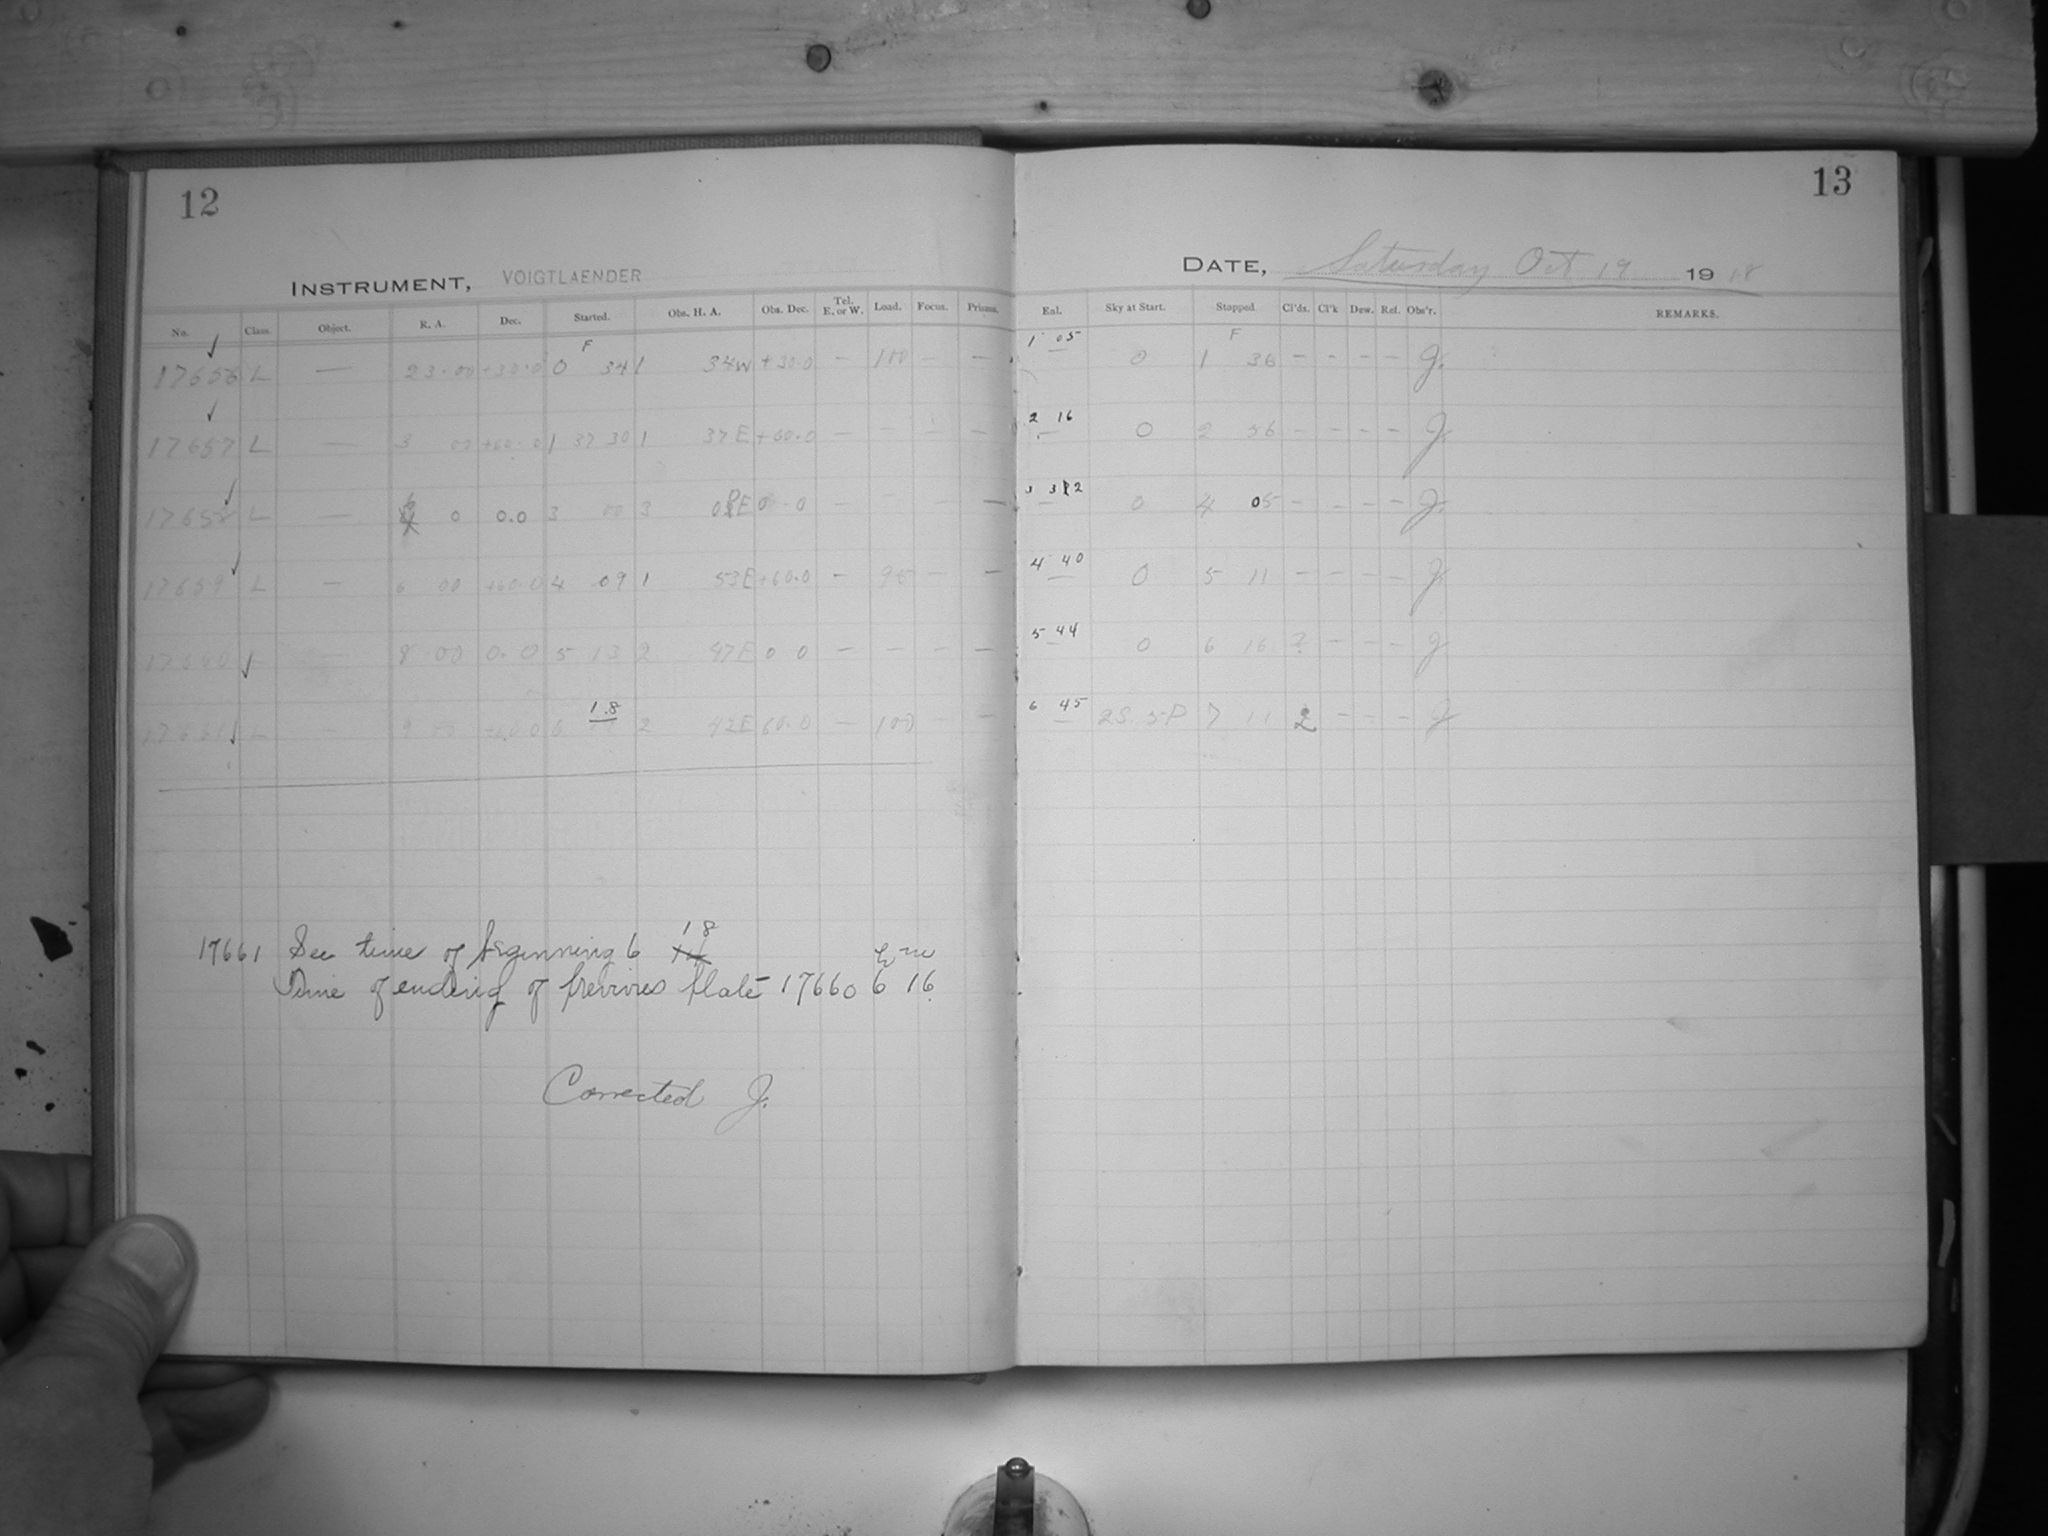 12
INSTRUMENT, VOIGTLAENDER
No. Class. Object. R. A. Dec. Started. Obs. H. A. Obs. Dec. Tel. E. or W. Load. Focus. Prisms.
F
17656 L — 23 00 +30.0 0 34 1 34W +30.0 — 100 — —
17657 L — 3 00 +60.0 1 37 30 1 37E +60.0 — — — —
17658 L — 6 0 0.0 3 00 3 0 0 — — — —
17659 L — 6 00 +60.0 4 09 1 53E +60.0 — — —
17660 L — 8 00 0.0 5 13 2 47E 0 0 — — — —
17661 L — 9 00 +60.0 6 18 2 42E 60.0 — 100 — —
17661 See time of beginning 6 18
h m
Time of ending of previous plate 17660 6 16
Corrected J.
13
DATE, Saturday Oct 19 1918
Eql. Sky at Start. Stopped Cl'ds. Cl'k Dew. Ref. Obs'r. REMARKS.
F
1 05 0 1 36 — — — — J.
2 16 0 2 56 — — — — J.
3 32 0 4 05 — — — — J.
4 40 0 5 11 — — — — J
5 44 0 6 16 ? — — — J
6 45 2S. 5P 7 11 2 — — — J